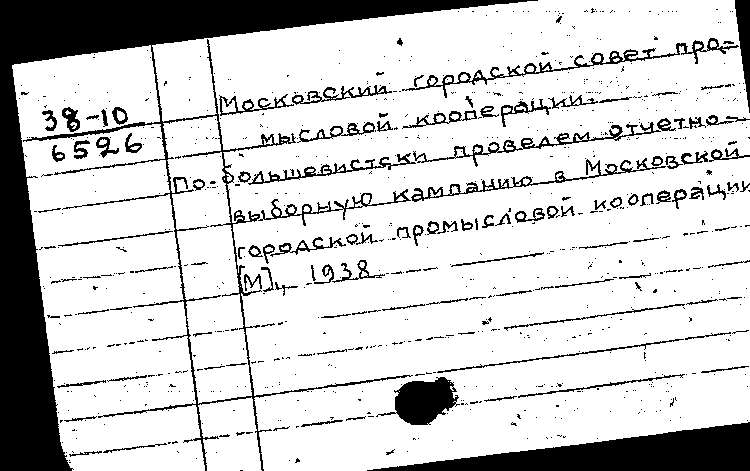 38-10
6526
Московский городской совет про-
мысловой кооперации.
По-большевистски проведем отчетно-
выборную кампанию в Московской
городской промысловой кооперации
[М], 1938